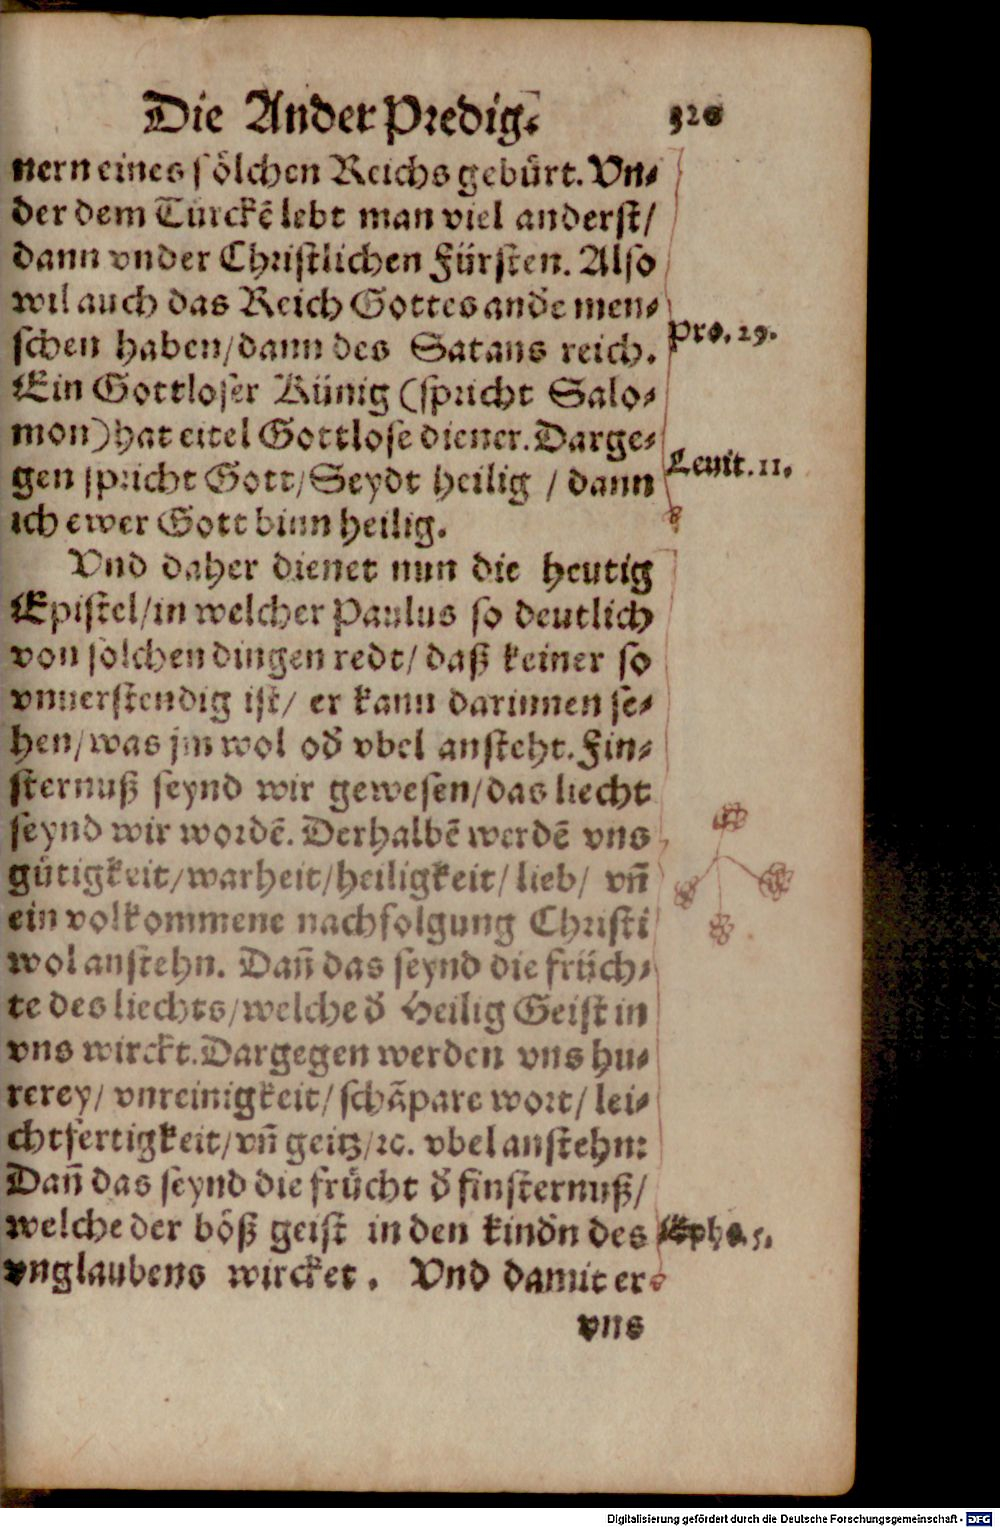 Die Ander Predig. 320
nern eines sölchen Reichs gebürt. Vn⸗
der dem Türckē lebt man viel anderst/
dann vnder Christlichen Fürsten. Also
wil auch das Reich Gottes andě men⸗
schen haben/dann des Satans reich. Pro. 29.
Ein Gottloser Künig (spricht Salo⸗
mon) hat eitel Gottlose diener. Darge⸗
gen spricht Gott/Seydt heilig / dann Leuit. 11.
ich ewer Gott binn heilig.
Vnd daher dienet nun die heutig
Epistel/in welcher Paulus so deutlich
von solchen dingen redt/ daß keiner so
vnuerstendig ist/ er kann darinnen se⸗
hen/was jm wol oď vbel ansteht. Fin⸗
sternuß seynd wir gewesen/das liecht
seynd wir wordē. Derhalbē werdē vns
gütigkeit/warheit/heiligkeit/ lieb/ vñ
ein volkommene nachfolgung Christi
wol anstehn. Dañ das seynd die früch⸗
te des liechts/welche ď Heilig Geist in
vns wirckt. Dargegen werden vns hu⸗
rerey/ vnreinigkeit/ schāpare wort/ lei⸗
chtfertigkeit/vñ geitz/ꝛc. vbel anstehn:
Dañ das seynd die frücht ď finsternuß/
welche der böß geist in den kinďn des Ephe. 5.
vnglaubens wircket. Vnd damit er
vns
Digitalisierung gefördert durch die Deutsche Forschungsgemeinschaft - DFG